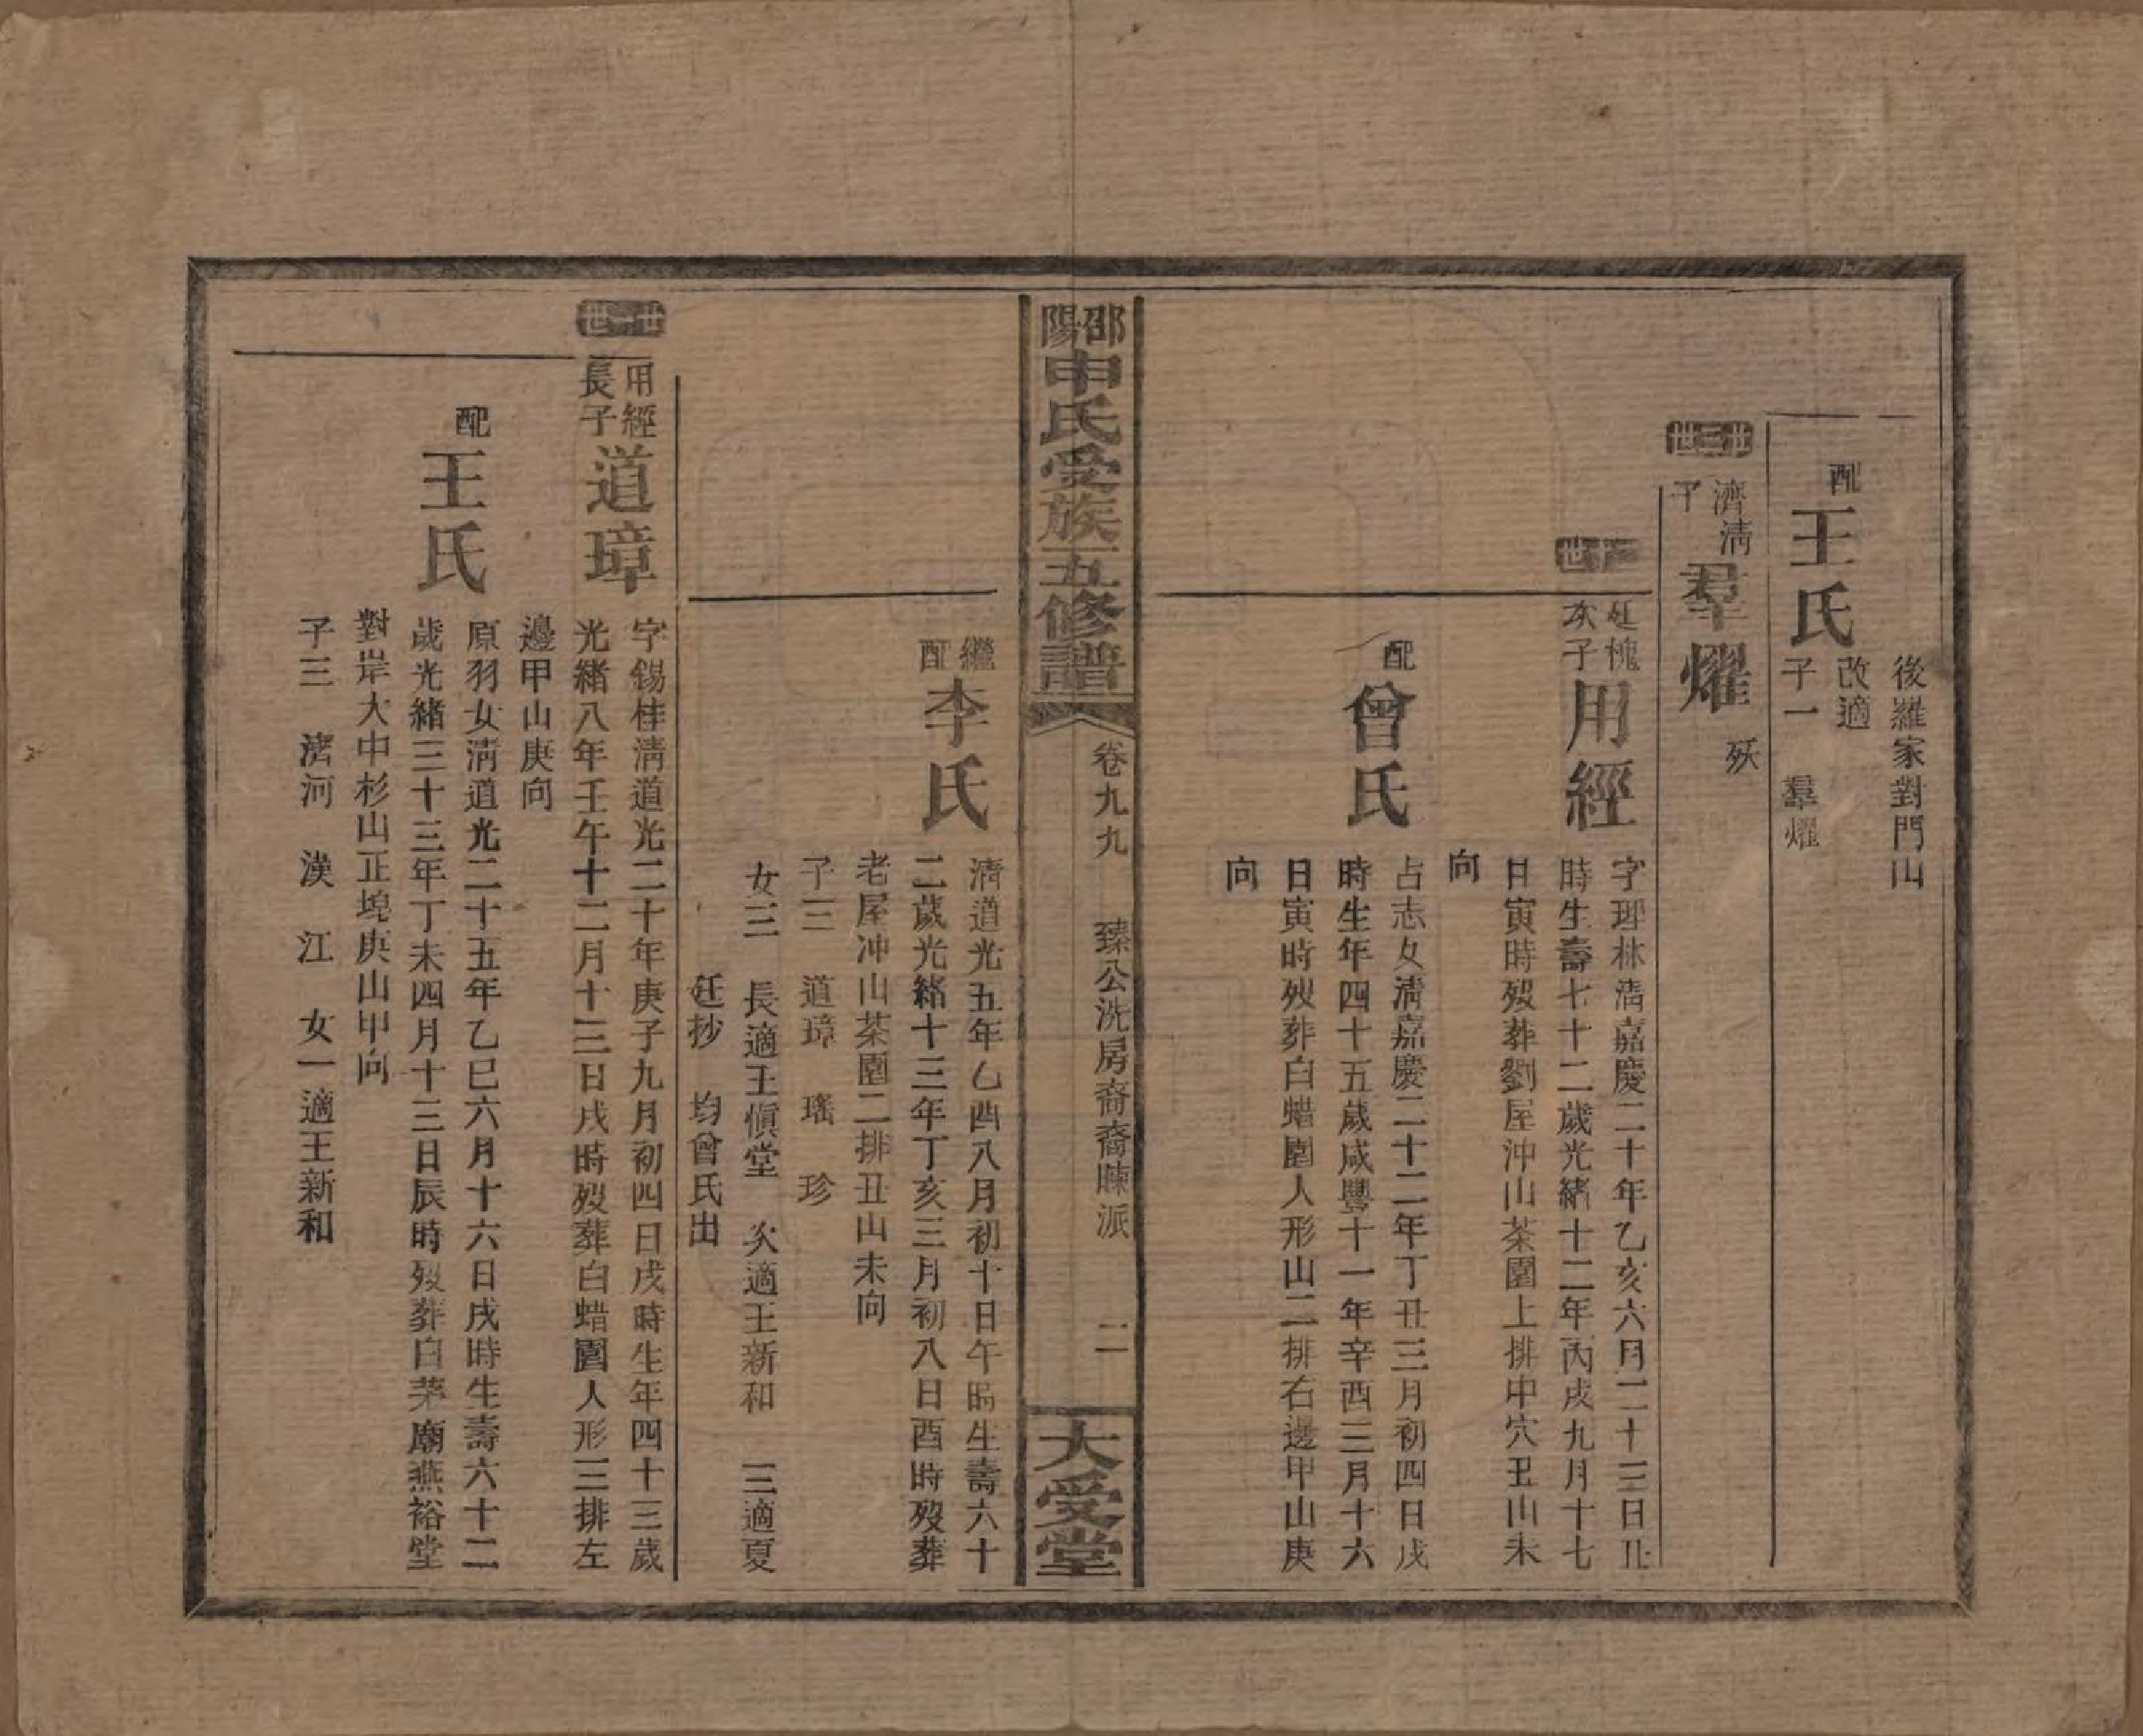 後羅家對門山
配
王氏
改適
子一　羣燿
濟清
子
羣燿
殀
廷槐
次子
用經
字理林清嘉慶二十年乙亥六月二十三日丑
時生壽七十二歲光緒十二年丙戌九月十七
日寅時歿葬劉屋沖山茶園上排中穴丑山未
向
配
曾氏
占志女清嘉慶二十二年丁丑三月初四日戌
時生年四十五歲咸豐十一年辛酉三月十六
日寅時歿葬白蜡園人形山二排右邊甲山庚
向
邵陽申氏受族五修譜
卷九九　臻公洗房裔裔暕派　二
大受堂
繼配
李氏
清道光五年乙酉八月初十日午時生壽六十
二歲光緒十三年丁亥三月初八日酉時歿葬
老屋冲山茶園二排丑山未向
子三　道璋　瑤　珍
女三　長適王愼堂　次適王新和　三適夏
廷抄　均曾氏出
世二世
用經
長子
道璋
字錫桂清道光二十年庚子九月初四日戌時生年四十三歲
光緒八年壬午十二月十三日戌時歿葬白蜡園人形三排左
邊甲山庚向
配
王氏
原羽女清道光二十五年乙巳六月十六日戌時生壽六十二
歲光緒三十三年丁未四月十三日辰時歿葬白茅廟燕裕堂
對岸大中杉山正塊庚山甲向
子三　濟河　漢　江　女一適王新和